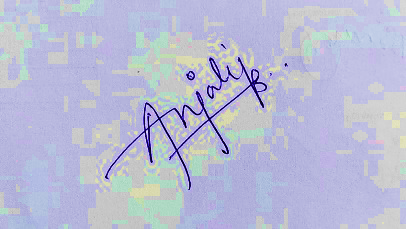 Anjali B..